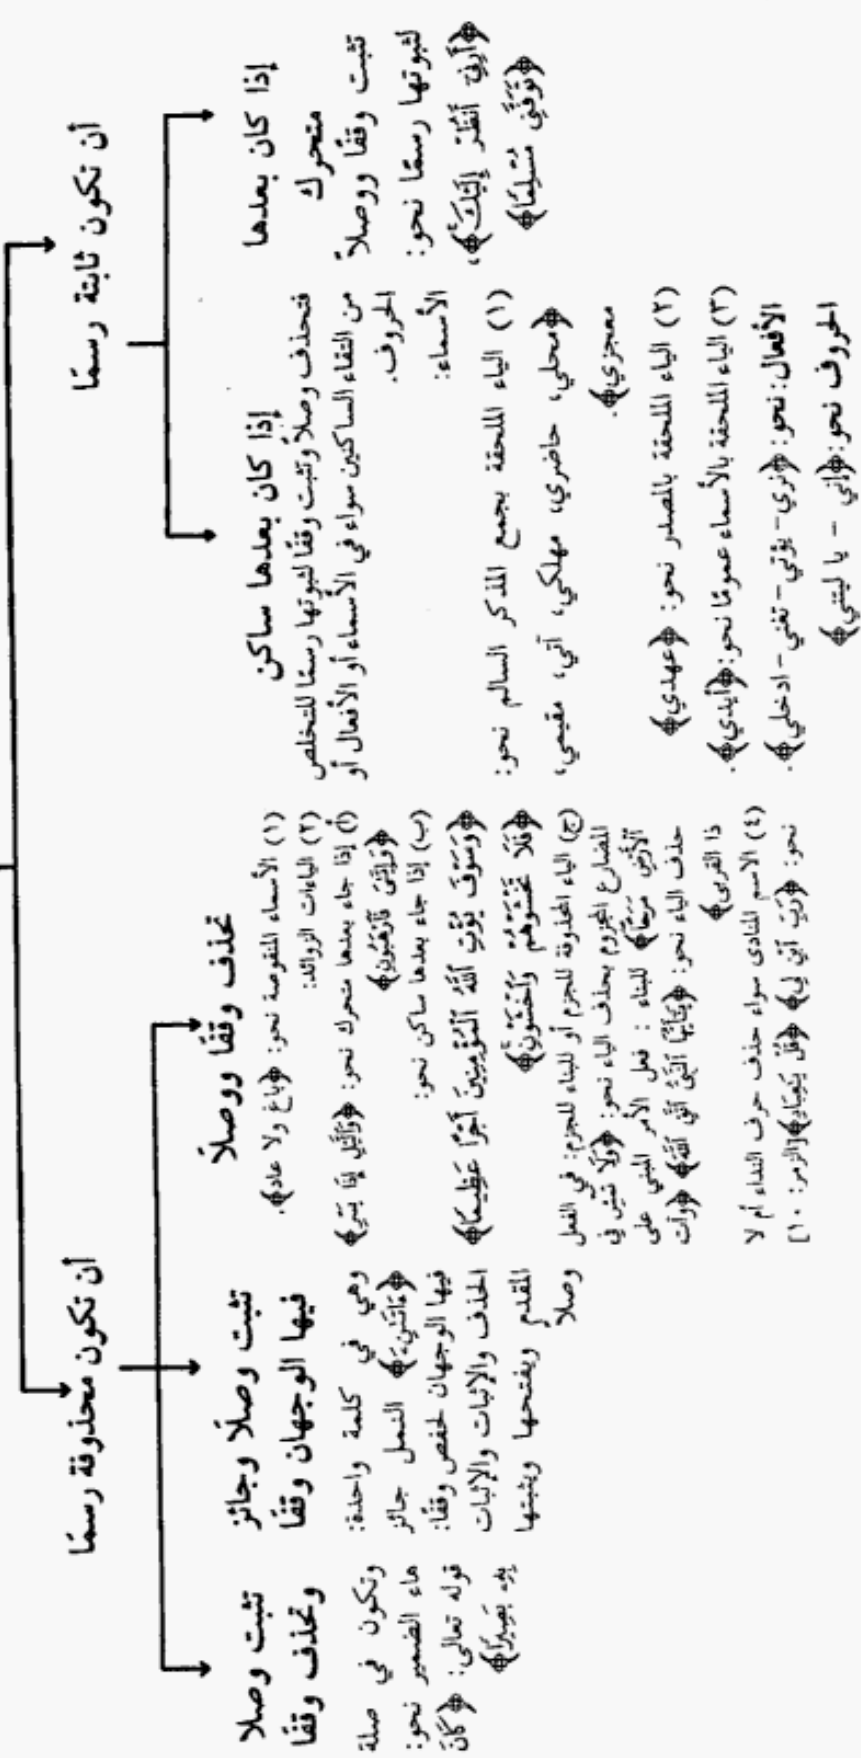 أن تكون ثابتة رسمًا
إذا كان بعدها
متحرك
تثبت وقفًا ووصلاً
لثبوتها رسمًا نحو:
﴿أَرِنِي أَنظُرْ إِلَيْكَ﴾،
﴿تَوَفَّنِي مُسْلِمًا﴾
إذا كان بعدها ساكن
فتحذف وصلاً وتثبت وقفًا لثبوتها رسمًا للتخلص
من التقاء الساكنين سواء في الأسماء أو الأفعال أو
الحروف.
الأسماء:
(١) الياء الملحقة بجمع المذكر السالم نحو:
﴿محلي، حاضري، مهلكي، آتي، مقيمي،
معجزي﴾.
(٢) الياء الملحقة بالمصدر نحو: ﴿عهدي﴾
(٣) الياء الملحقة بالأسماء عمومًا نحو: ﴿أيدي﴾.
الأفعال: نحو: ﴿نري - يؤتي - تغني - ادخلي﴾.
الحروف نحو: ﴿إني - يا ليتني﴾
أن تكون محذوفة رسمًا
تحذف وقفًا ووصلاً
(١) الأسماء المنقوصة نحو: ﴿باغ ولا عاد﴾.
(٢) الياءات الزوائد:
(أ) إذا جاء بعدها متحرك نحو: ﴿وَاللَّيْلِ إِذَا يَسْرِ﴾
﴿وَإِيَّايَ فَارْهَبُونِ﴾
(ب) إذا جاء بعدها ساكن نحو:
﴿وَسَوْفَ يُؤْتِ اللَّهُ الْمُؤْمِنِينَ أَجْرًا عَظِيمًا﴾
﴿فَلَا تَخْشَوْهُمْ وَاخْشَوْنِ﴾
(ج) الياء المحذوفة للجزم أو للبناء للجزم: في الفعل
المضارع المجزوم بحذف الياء نحو: ﴿وَلَا تَمْشِ فِي
الْأَرْضِ مَرَحًا﴾ للبناء: فعل الأمر المبني على
حذف الياء نحو: ﴿يَا أَيُّهَا النَّبِيُّ اتَّقِ اللَّهَ﴾ ﴿وآت
ذا القربى﴾
(٤) الاسم المنادى سواء حذف حرف النداء أم لا
نحو: ﴿رَبِّ ابْنِ لِي﴾ ﴿قُلْ يَا عِبَادِ﴾ [الزمر: ١٠]
تثبت وصلاً وجائز
فيها الوجهان وقفًا
وهي في كلمة واحدة:
﴿ءَاتَىٰنِۦَ﴾ النمل جائز
فيها الوجهان لحفص وقفًا:
الحذف والإثبات والإثبات
المقدم ويفتحها ويثبتها
وصلاً
تثبت وصلا
وتحذف وقفًا
وتكون في صلة
هاء الضمير نحو:
قوله تعالى: ﴿كَانَ
بِهِۦ بَصِيرًا﴾